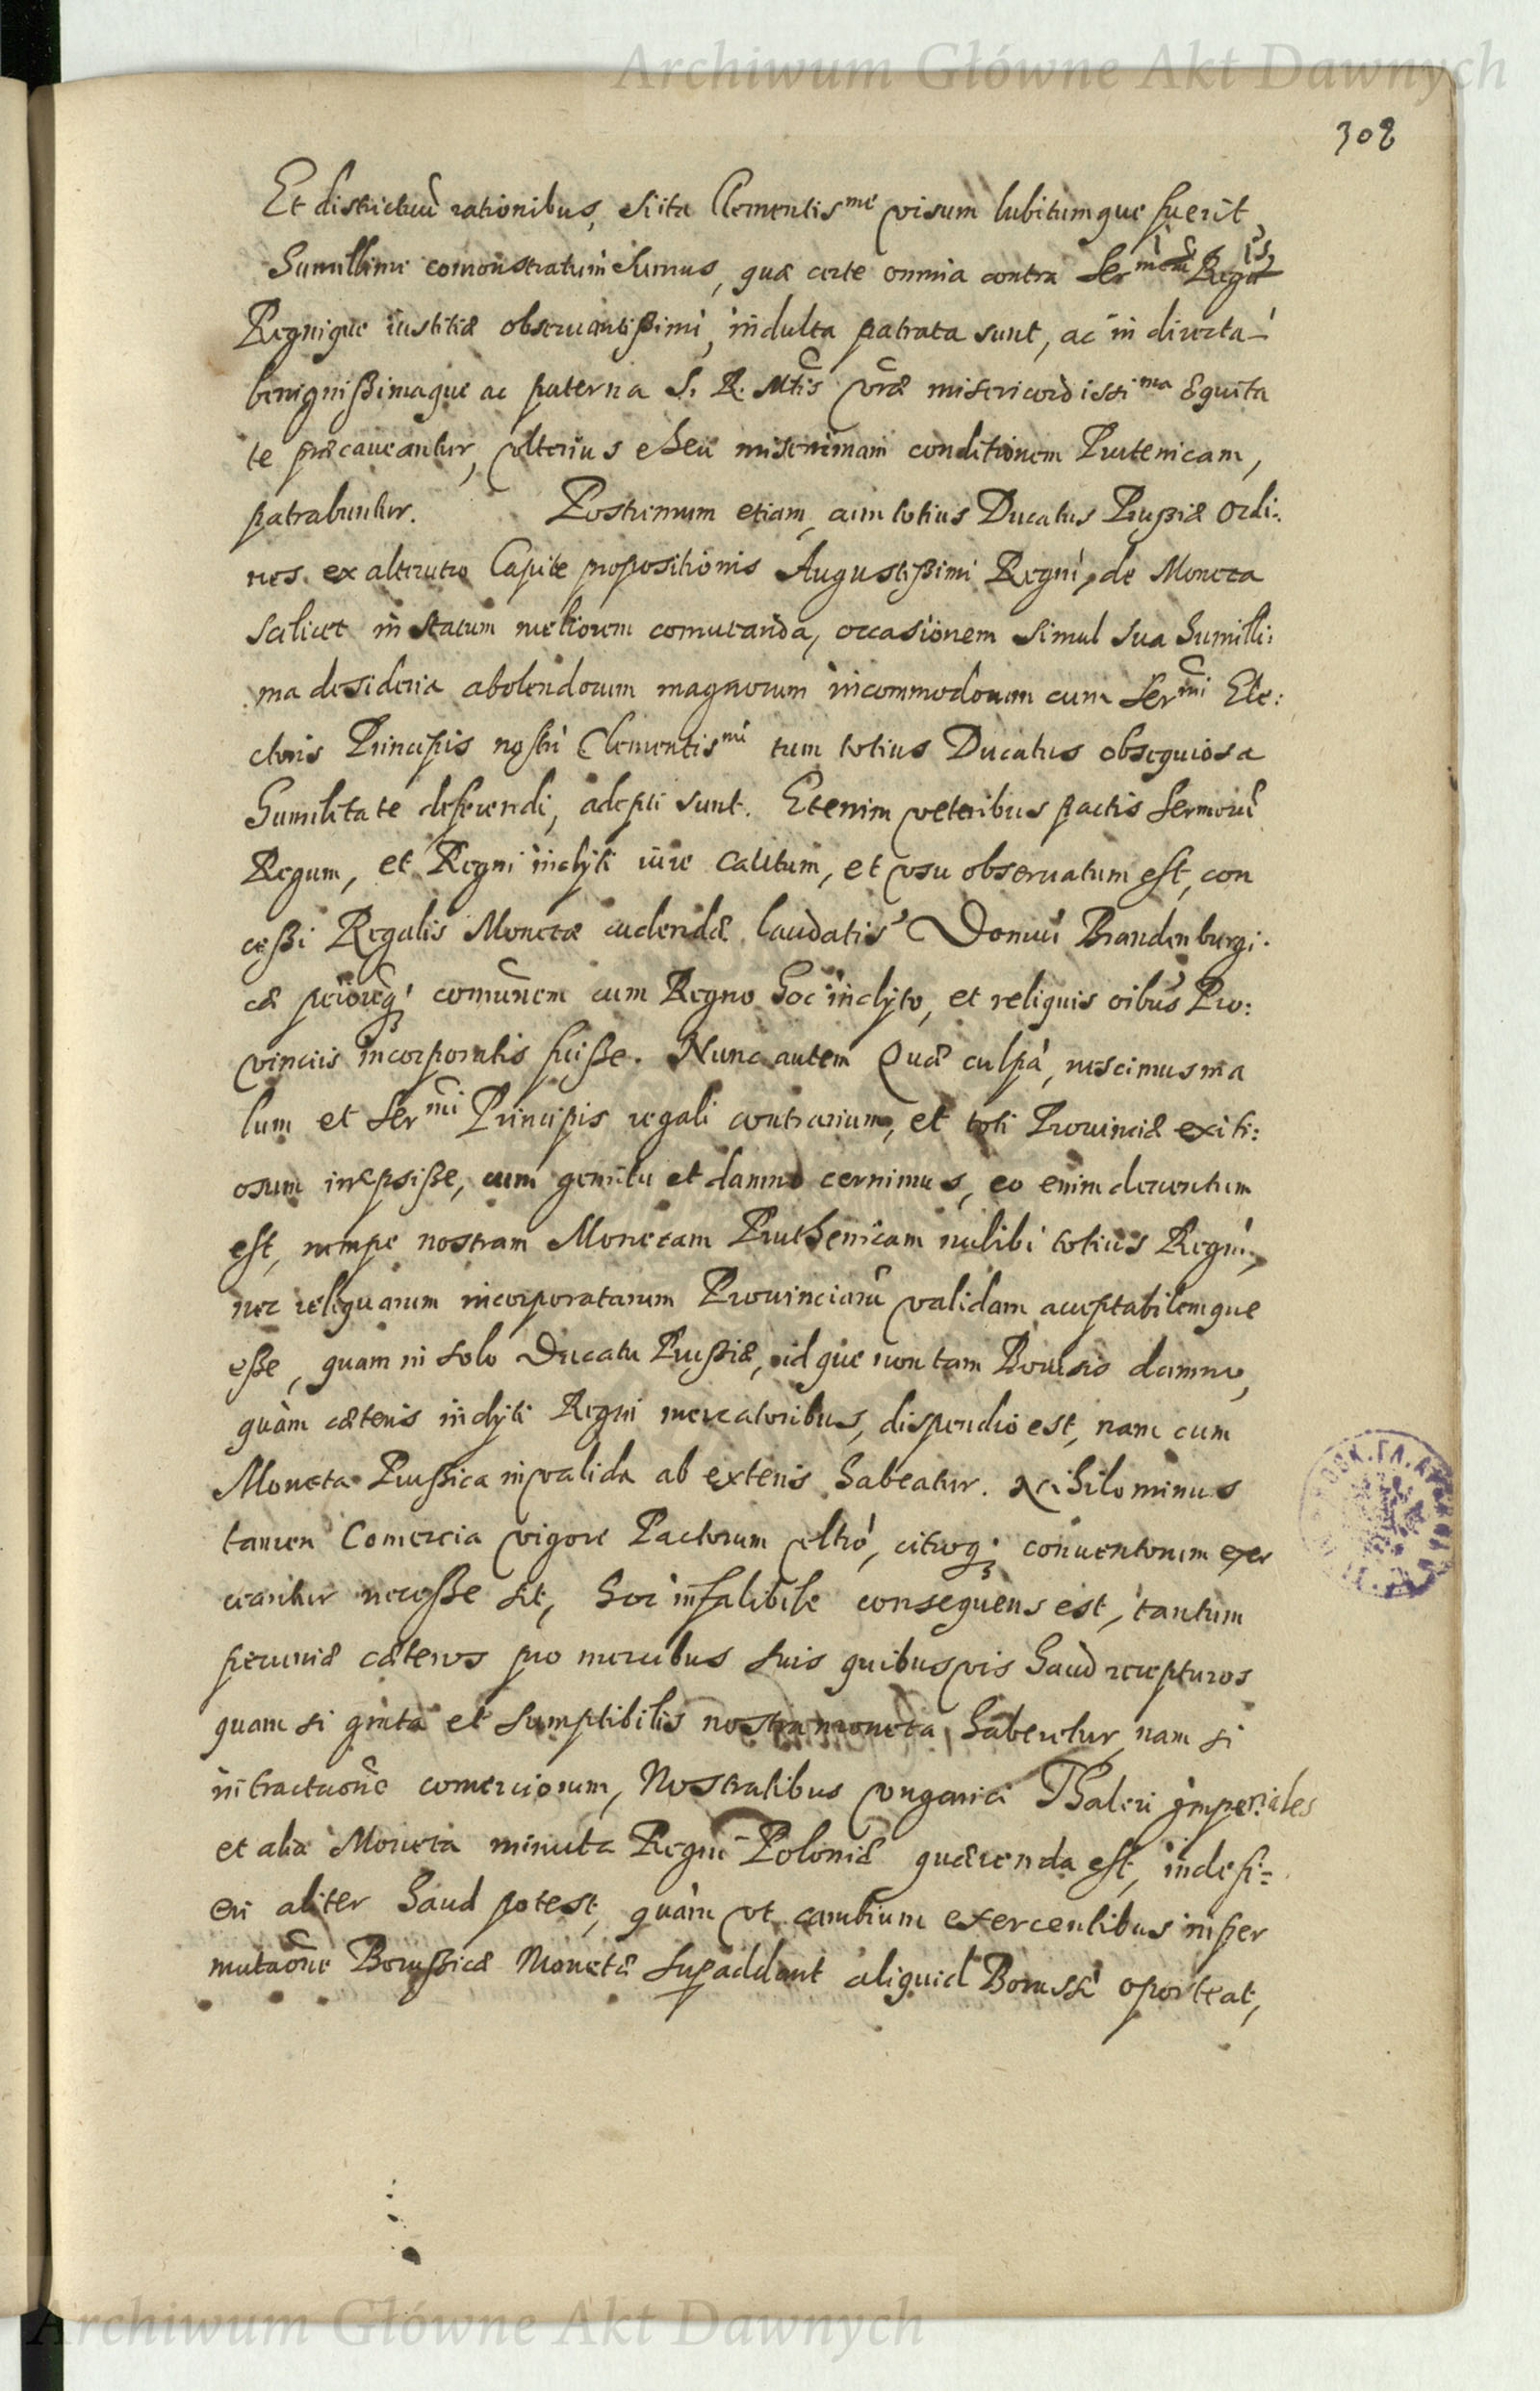 Archiwum Główne Akt Dawnych
308
Et districtuũ rationibus, si ita Clementis^me visum lubitumque fuerit,
humillime comonstraturi sumus, quæ certe omnia contra Ser^mi Regis
Regnique iustitiæ obseruantißimi, indulta patrata sunt, ac in directa
benignißimaque ac paterna S. R. Mtis vræ misericordissi^ma Equita
te præcaueantur, vlterius eheu miserrimam conditionem Prutenicam,
patrabuntur. Postremum etiam, cum totius Ducatus Prußiæ Ordi:
nes ex alterutro Capite propositionis Augustißimi Regni, de Moneta
scilicet in statum meliorem comutanda, occasionem simul sua humilli:
ma desideria abolendorum magnorum incommodorum cum Ser^mi Ele:
ctoris Principis nostri Clementis^mi tum totius Ducatus obsequiosa
humilitate deferendi, adepti sunt. Etenim veteribus pactis Sermorũ
Regum, et Regni inclyti iure cautum, et vsu obseruatum est, con
ceßi Regalis Monetæ cudendæ laudatis Domui Brandenburgi:
cæ comũnem cum Regno hoc inclyto, et reliquis oibus Pro:
vinciis incorporatis fuiße. Nunc autem Quâ culpâ, nescimus ma
lum et Ser^mi Principis regali contrarium, et toti Prouinciæ exiti:
osum irrepsiße, cum gemitu et damno cernimus, eo enim deventum
est, nempe nostram Monetam Pruthenicam nulibi totius Regni,
nec reliquarum incorporatarum Prouinciarũ validam acceptabilemque
eße, quam in solo Ducatu Prußiæ, idque non tam Borusis damno,
quàm cæteris inclyti Regni mercatoribus, dispendio est, nam cum
Moneta Prußica invalida ab exteris habeatur. Nihilominus
tamen Comercia vigore Pactorum vltrò, citroq; conuentorum exer
ceantur neceße sit, hoc infalibile consequens est, tantum
pecuniæ cæteros pro mercibus suis quibusvis haud recepturos
quam si grata et sumptibilis nostra moneta haberetur, nam si
in tractaõne comerciorum, Nostratibus vngarici Thaleri imperiales
et alia Moneta minuta Regni Poloniæ quærenda est, inde fi=
eri aliter haud potest, quàm vt cambium exercentibus in per
mutaõne Borußicæ Monetæ supaddant aliquid Borussi oporteat,
Archiwum Główne Akt Dawnych